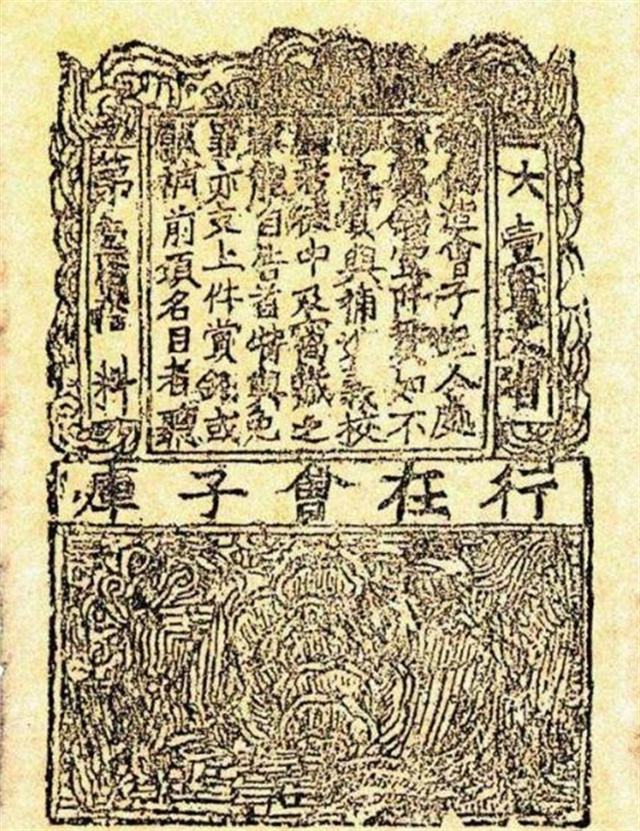 大壹貫文省
造會子犯人處
賞錢壹阡貫如不
支賞與補進義校
若徒中及窩藏之
家能自告首特與免
罪亦支上件賞錢或
願補前項名目者聽
第壹百拾料
行在會子庫